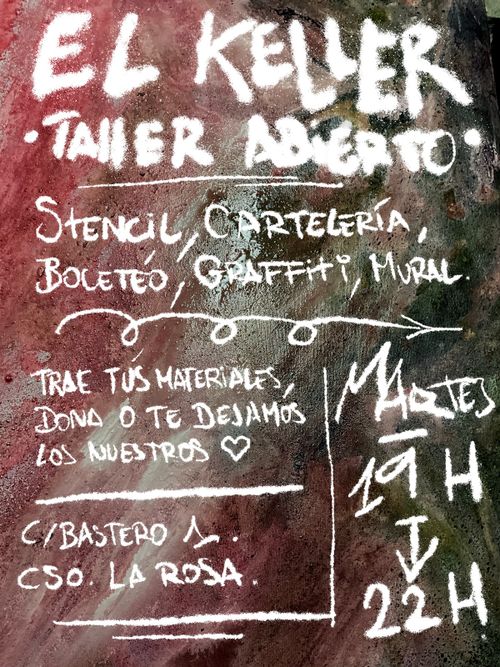 EL KELLER
· TALLER ABIERTO ·
STENCIL, CARTELERÍA,
BOCETEO, GRAFFITI, MURAL.
TRAE TUS MATERIALES,
DONA O TE DEJAMOS
LOS NUESTROS ♡
C/BASTERO 1.
CSO. LA ROSA.
MARTES
19 H
↓
22 H.